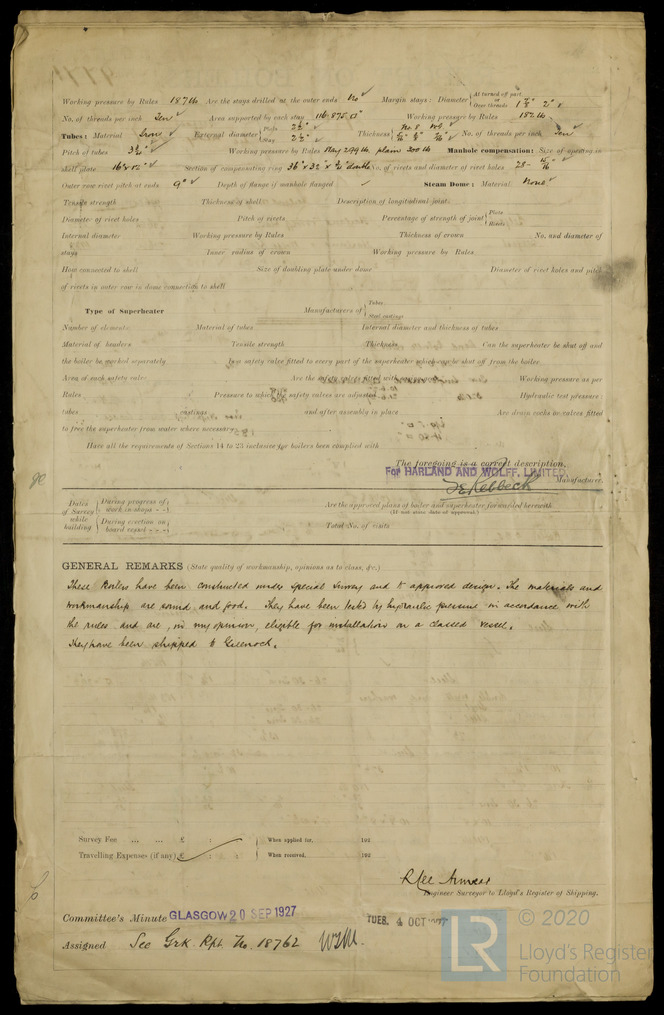 Working pressure by Rules 187 lb Are the stays drilled at the outer ends No Margin stays: Diameter { At turned off part, or Over threads 1 7/8" 2"
No. of threads per inch Ten Area supported by each stay 116.875 □" Working pressure by Rules 187 lb
Tubes: Material Iron External diameter { Plain 2½" Stay 2½" Thickness { No. 8 WG No. of threads per inch Ten
Pitch of tubes 3¾" Working pressure by Rules Stay 299 lb plain 300 lb Manhole compensation: Size of opening in
shell plate 16" x 12" Section of compensating ring No. of rivets and diameter of rivet holes 28 - 15/16"
Outer row rivet pitch at ends 9" Depth of flange if manhole flanged Steam Dome: Material None
Tensile strength Thickness of shell Description of longitudinal joint
Diameter of rivet holes Pitch of rivets Percentage of strength of joint { Plate Rivets
Internal diameter Working pressure by Rules Thickness of crown No. and diameter of
stays Inner radius of crown Working pressure by Rules
How connected to shell Size of doubling plate under dome Diameter of rivet holes and pitch
of rivets in outer row in dome connection to shell
Type of Superheater Manufacturers of { Tubes Steel castings
Number of elements Material of tubes Internal diameter and thickness of tubes
Material of headers Tensile strength Thickness Can the superheater be shut off and
the boiler be worked separately Is a safety valve fitted to every part of the superheater which can be shut off from the boiler
Area of each safety valve Are the safety valves fitted with Working pressure as per
Rules Pressure to which the safety valves are adjusted Hydraulic test pressure :
tubes castings and after assembly in place Are drain cocks or valves fitted
to free the superheater from water where necessary
Have all the requirements of Sections 14 to 23 inclusive for boilers been complied with
The foregoing is a correct description,
For HARLAND AND WOLFF, LIMITED.
Manufacturer.
Dates of Survey while building { During progress of work in shops - - } Are the approved plans of boiler and superheater forwarded herewith
(If not state date of approval.)
{ During erection on board vessel - - - } Total No. of visits
GENERAL REMARKS (State quality of workmanship, opinions as to class, &c.)
These Boilers have been constructed under Special Survey and to approved design. The materials and
workmanship are sound and good. They have been tested by hydraulic pressure in accordance with
the rules and are, in my opinion, eligible for installation on a classed vessel.
They have been shipped to Greenock.
Survey Fee ... ... £ : : When applied for, 192
Travelling Expenses (if any) £ : : When received, 192
Engineer Surveyor to Lloyd's Register of Shipping.
Committee's Minute GLASGOW 20 SEP 1927 TUES. 4 OCT 1927
Assigned See Grk Rpt No. 18762
© 2020
LR
Lloyd's Register
Foundation